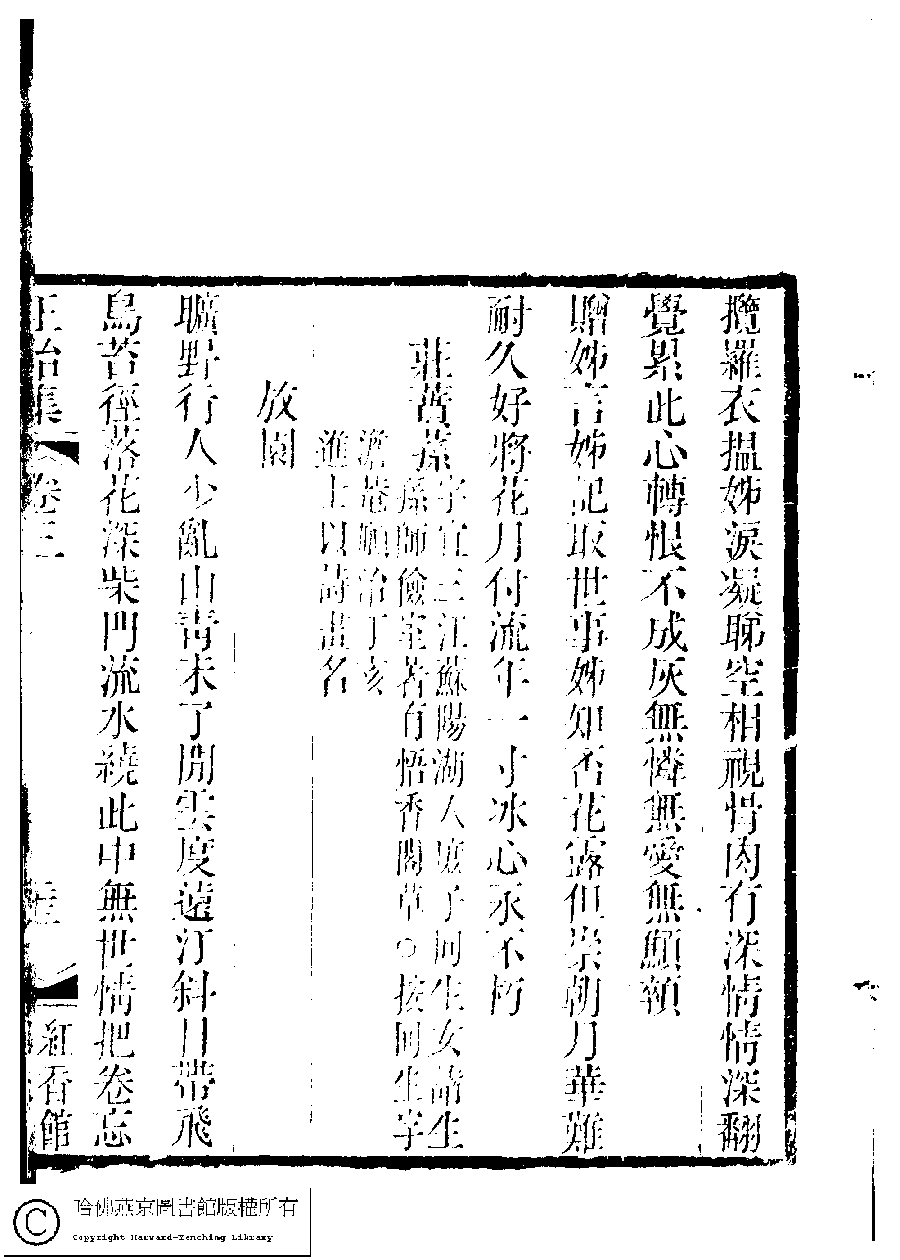 攬羅衣揾姊淚凝睇空相視骨肉有深情情深翻
覺累此心轉恨不成灰無憐無愛無顦顇
贈姊言姊記取世事姊知否花露但崇朝月華難
耐久好將花月付流年一寸冰心永不朽
莊蓀字宜三江蘇陽湖人庶子同生女諸生
孫師儉室著有悟香閣草○按同生字
澹菴順治丁亥
進士以詩畫名
放園
曠野行人少亂山青未了閒雲度遠汀斜日帶飛
鳥苔徑落花深柴門流水繞此中無世情把卷忘
正始集 卷三 紅香館
哈佛燕京圖書館版權所有
Copyright Harvard-Yenching Library